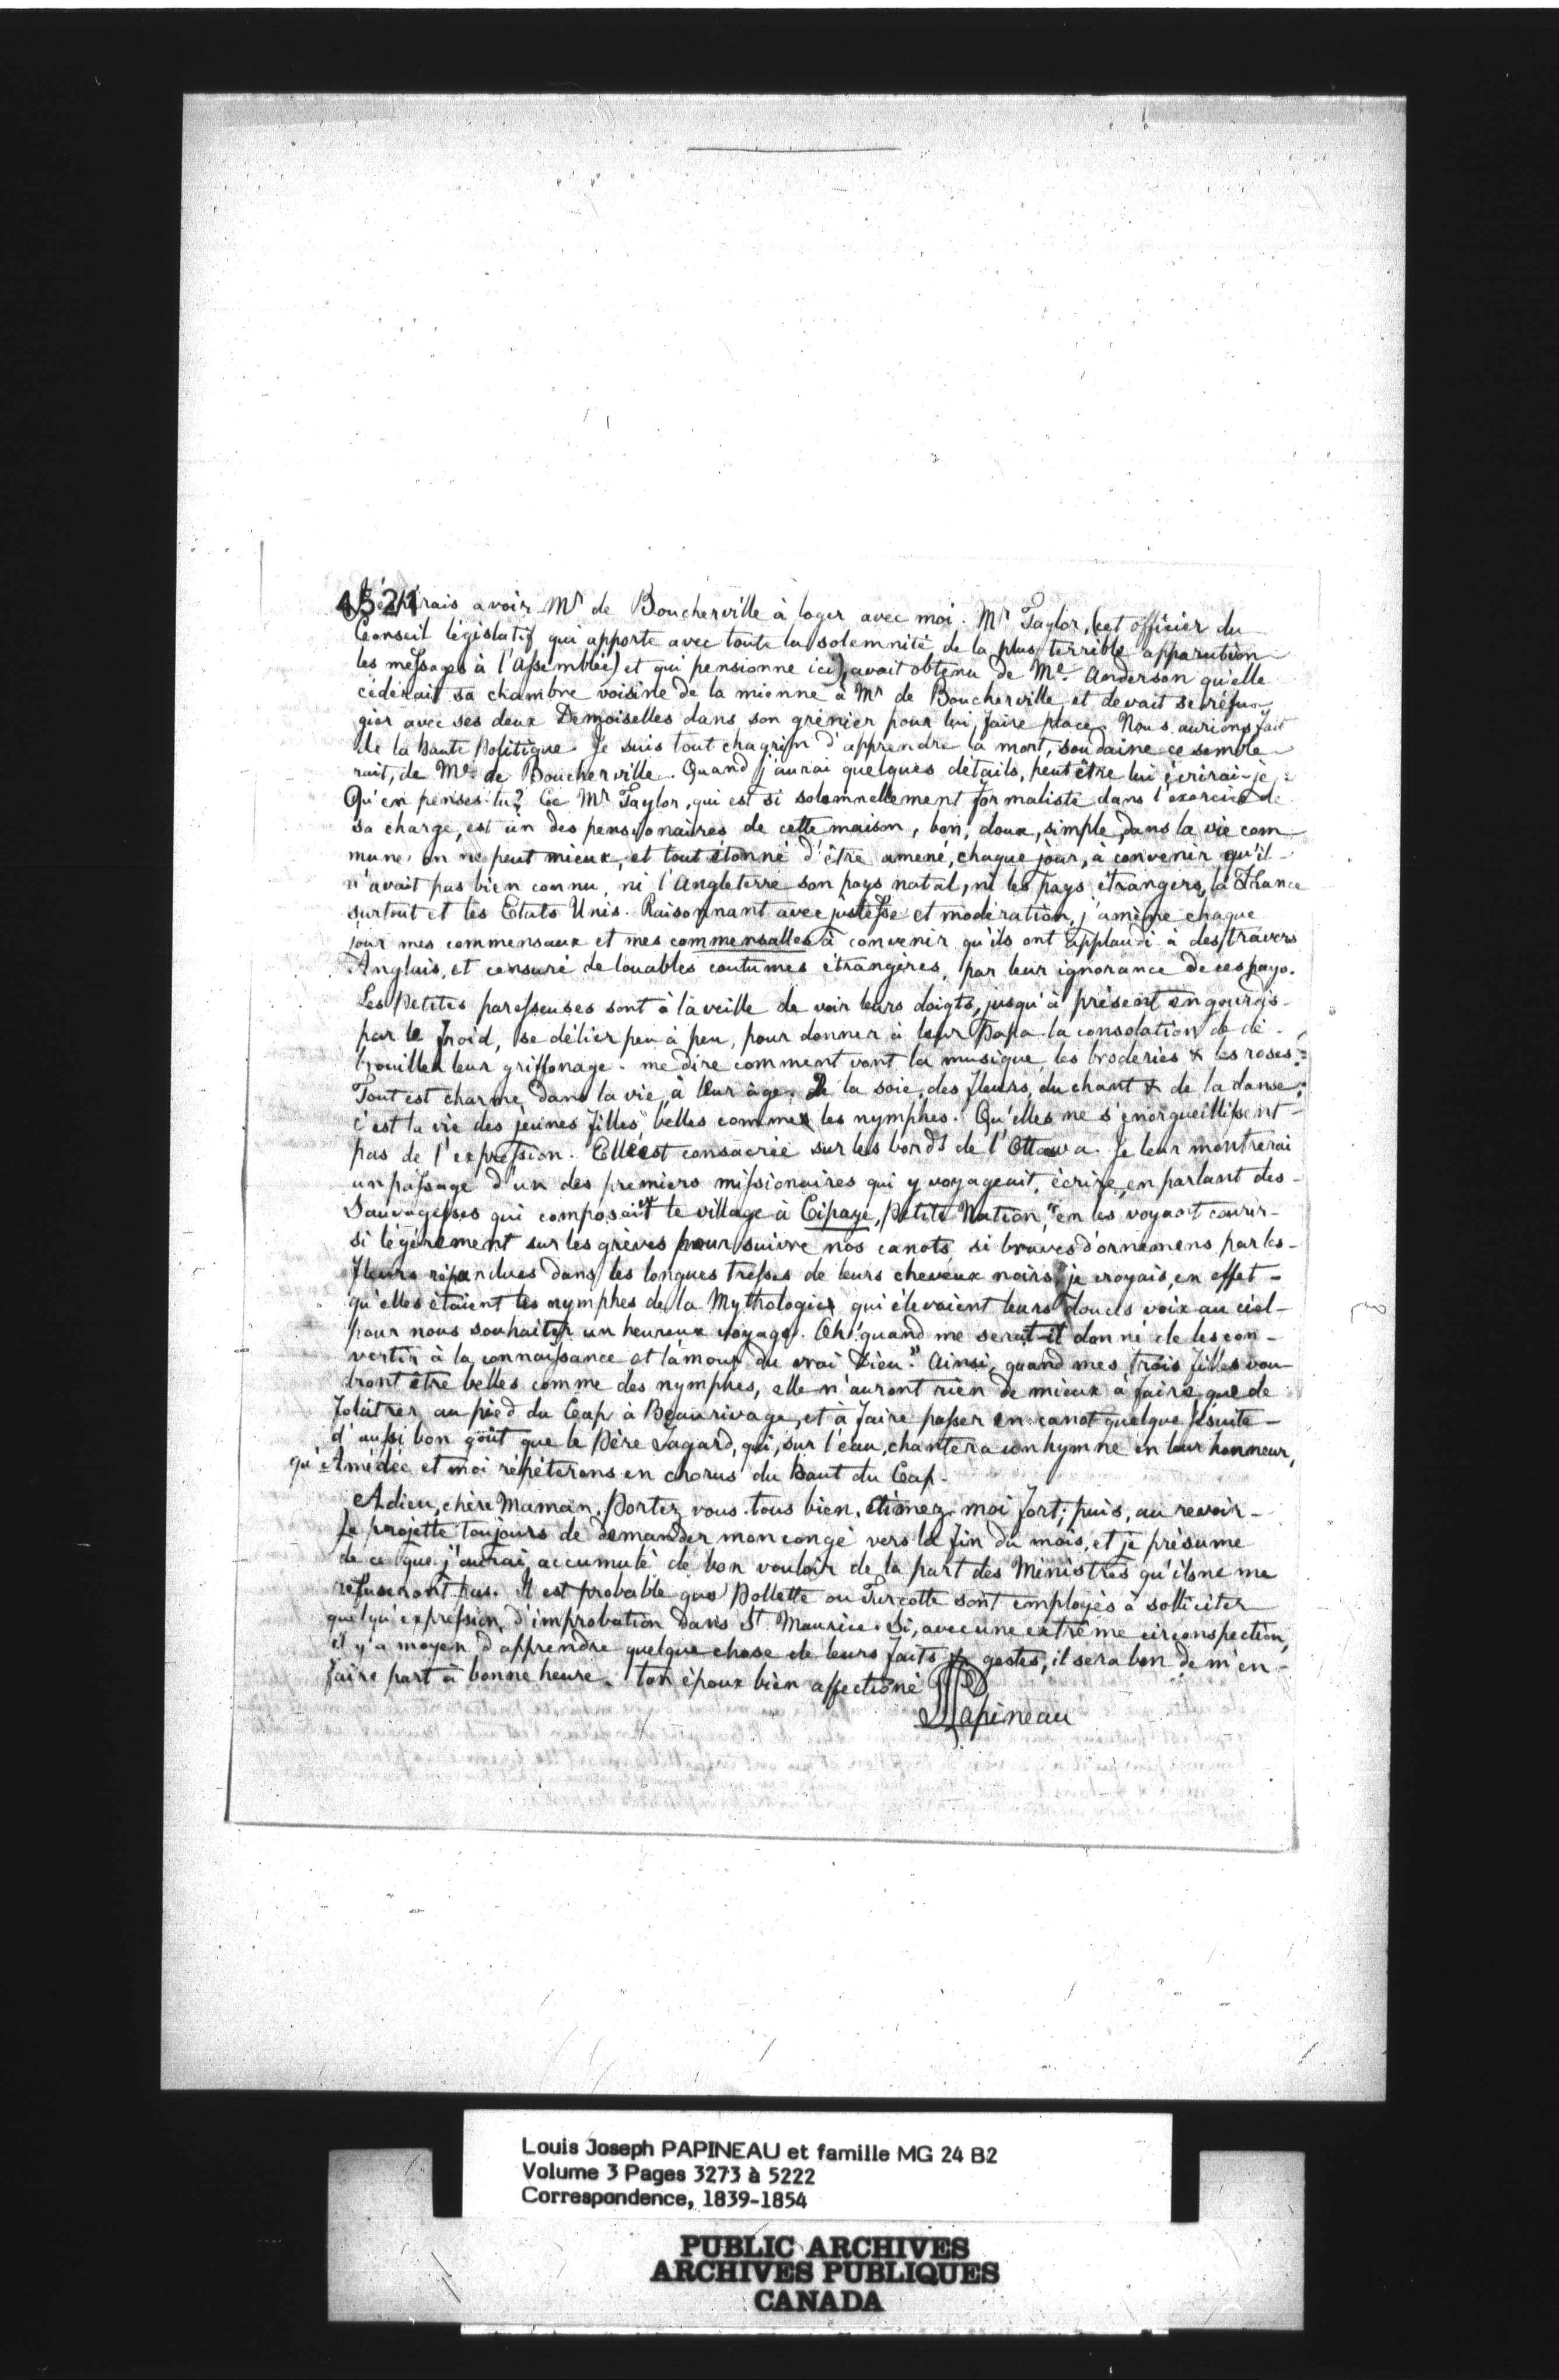 4521
J'espérais avoir Mr de Boucherville à loger avec moi. Mr Taylor, (cet officier du
Conseil législatif qui apporte avec toute la solemnité de la plus terrible apparution
les messages à l'Assemblée) et qui pensionne ici), avait obtenu de Me. Anderson qu'elle
céderait sa chambre voisine de la mienne à Mr de Boucherville et devait se réfu-
gier avec ses deux Demoiselles dans son grénier pour lui faire place. Nous aurions fait
de la haute politique. Je suis tout chagrin d'apprendre la mort, soudaine ce semble-
rait, de Me. de Boucherville. Quand j'aurai quelques détails, peut être lui écrirai-je.
Qu'en penses-tu? Ce Mr Taylor, qui est si solemnellement formaliste dans l'exercice de
sa charge, est un des pensionaires de cette maison, bon, doux, simple, dans la vie com-
mune on ne peut mieux, et tout étonné d'être amené, chaque jour, à convenir qu'il
n'avait pas bien connu, ni l'Angleterre son pays natal, ni les pays étrangers, la France
surtout et les Etats Unis. Raisonnant avec justesse et modération, j'amène chaque
jour mes commensaux et mes commensalles à convenir qu'ils ont applaudi à des travers
Anglais, et censuré de louables coutumes étrangères, par leur ignorance de ces pays.
Les petites paresseuses sont à la veille de voir leurs doigts, jusqu'à présent engourdis
par le froid, se délier peu à peu, pour donner à leur Papa la consolation de dé-
brouiller leur griffonage. me dire comment vont la musique, les broderies & les roses.
Tout est charme dans la vie, à leur âge. De la soie, des fleurs, du chant & de la danse;
c'est la vie des jeunes filles "belles comme les nymphes." Qu'elles ne s'énorgueillissent
pas de l'expression. Elle est consacrée sur les bords de l'Ottawa. Je leur montrerai
un passage d'un des premiers missionaires qui y voyageait, écrire, en parlant des
Sauvagesses qui composaient le village à Cipaye, Petite Nation, "en les voyant courir
si légèrement sur les grèves pour suivre nos canots, si braves d'ornemens par les
fleurs répandues dans les longues tresses de leurs cheveux noirs, je croyais, en effet
qu'elles étaient les nymphes de la Mythologie qui élevaient leurs doucls voix au ciel
pour nous souhaiter un heureux voyage. Oh! quand me serat-il donné de les con-
vertir à la connaissance et l'amour du vrai Dieu." Ainsi, quand mes trois filles vou-
dront être belles comme des nymphes, elle n'auront rien de mieux à faire que de
folâtrer au pied du Cap à Beaurivage, et à faire passer en canot quelque Jésuite
d'aussi bon goût que le Père Sagard, qui, sur l'eau, chantera un hymne en leur honneur,
qu'Amédée et moi répéterons en chorus du haut du Cap.
Adieu, chère Maman. Portez vous tous bien. Aimez-moi fort; puis, au revoir.
Je projette toujours de demander mon congé vers la fin du mois, et je présume
de ce que j'aurai accumulé de bon vouloir de la part des Ministres qu'ils ne me
refuseront pas. Il est probable que Pollette ou Turcotte sont employés à solliciter
quelqu'expression d'improbation dans St Maurice. Si, avec une extrême circonspection,
il y'a moyen d'apprendre quelque chose de leurs faits & gestes, il sera bon de m'en
faire part à bonne heure. ton époux bien affectioné
LJPapineau
Louis Joseph PAPINEAU et famille MG 24 B2
Volume 3 Pages 3273 à 5222
Correspondence, 1839-1854
PUBLIC ARCHIVES
ARCHIVES PUBLIQUES
CANADA